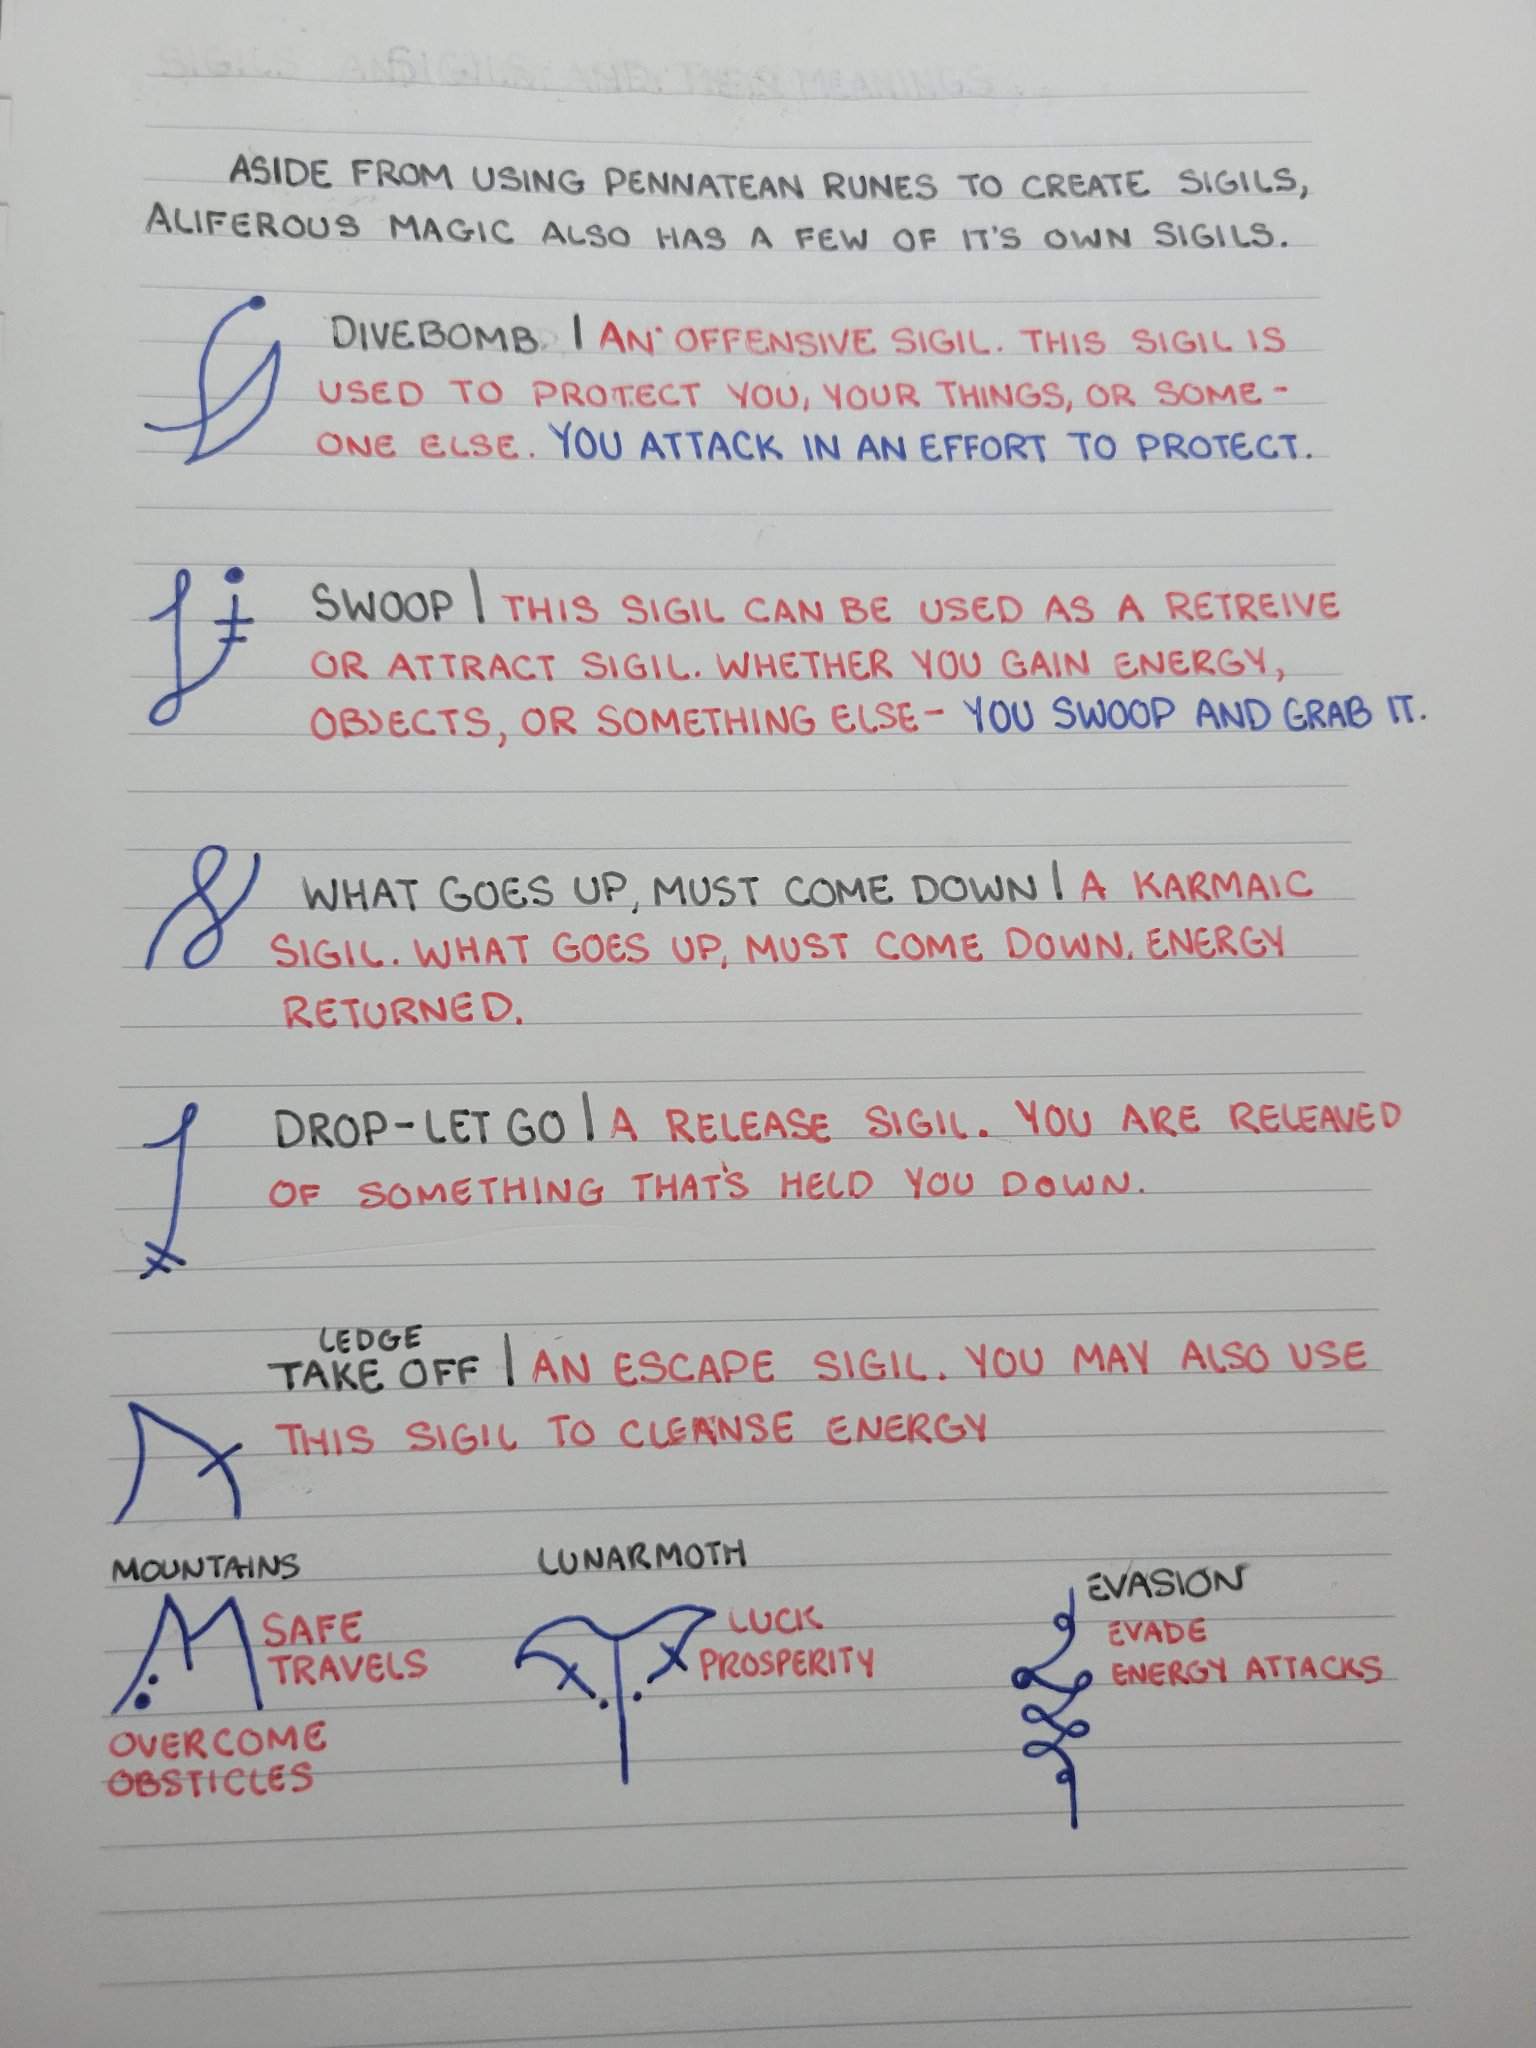 ASIDE FROM USING PENNATEAN RUNES TO CREATE SIGILS,
ALIFEROUS MAGIC ALSO HAS A FEW OF IT'S OWN SIGILS.
DIVEBOMB | AN OFFENSIVE SIGIL. THIS SIGIL IS
USED TO PROTECT YOU, YOUR THINGS, OR SOME-
ONE ELSE. YOU ATTACK IN AN EFFORT TO PROTECT.
SWOOP | THIS SIGIL CAN BE USED AS A RETREIVE
OR ATTRACT SIGIL. WHETHER YOU GAIN ENERGY,
OBJECTS, OR SOMETHING ELSE- YOU SWOOP AND GRAB IT.
WHAT GOES UP, MUST COME DOWN | A KARMAIC
SIGIL. WHAT GOES UP, MUST COME DOWN. ENERGY
RETURNED.
DROP-LET GO | A RELEASE SIGIL. YOU ARE RELEAVED
OF SOMETHING THAT'S HELD YOU DOWN.
LEDGE
TAKE OFF | AN ESCAPE SIGIL. YOU MAY ALSO USE
THIS SIGIL TO CLEANSE ENERGY
MOUNTAINS
SAFE
TRAVELS
OVERCOME
OBSTICLES
LUNARMOTH
LUCK
PROSPERITY
EVASION
EVADE
ENERGY ATTACKS